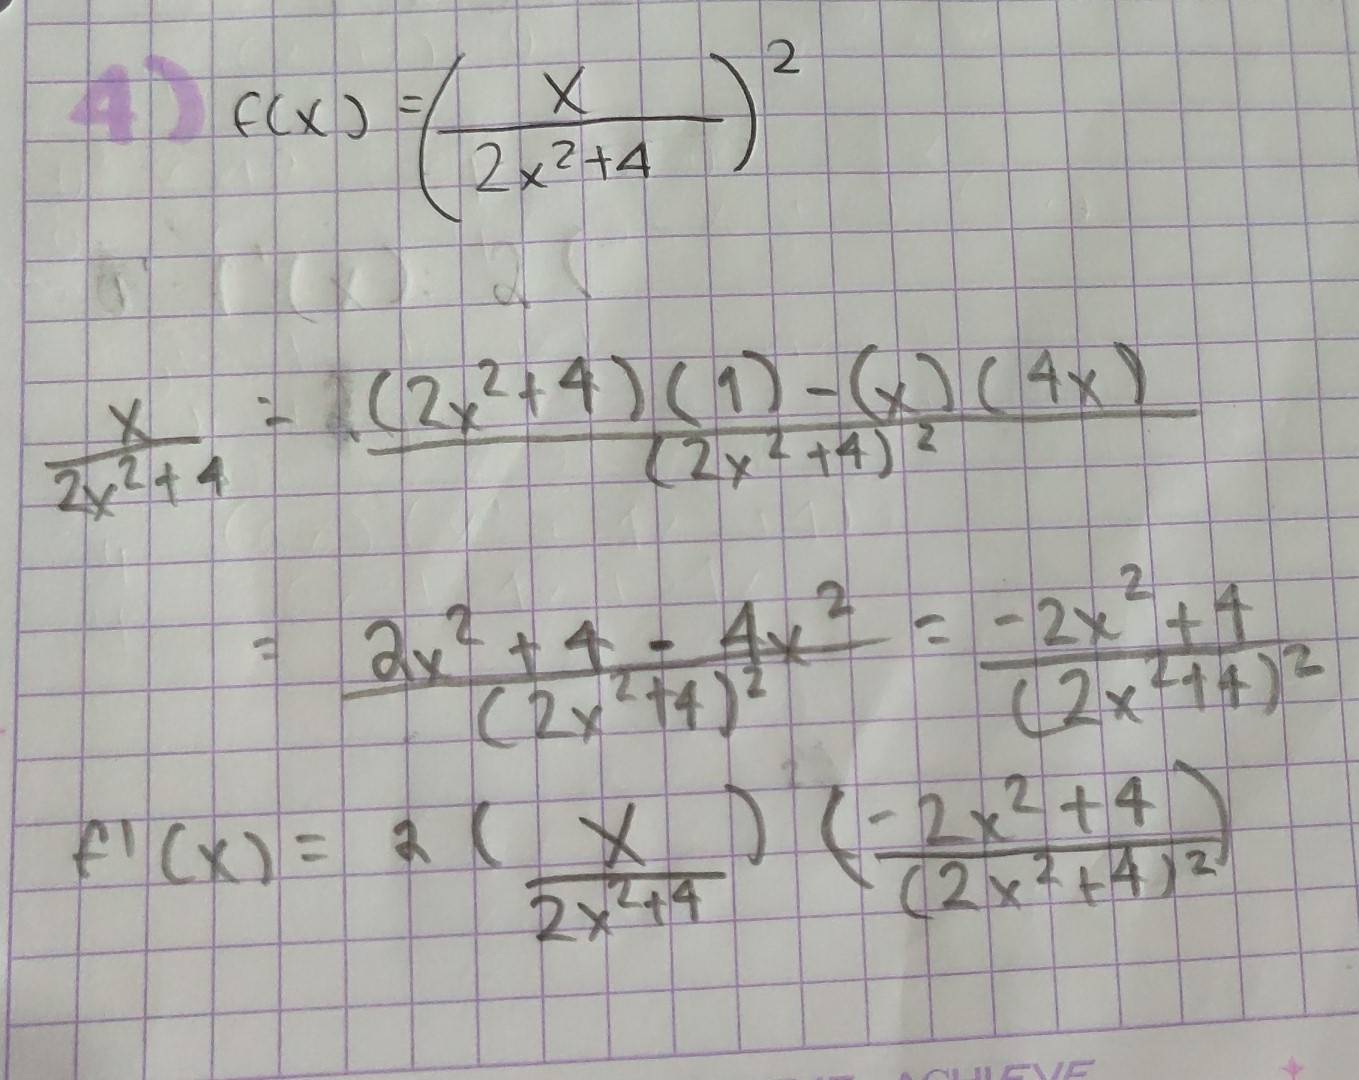 4) f(x) = (x / 2x²+4)²
x / 2x²+4 = (2x²+4)(1)-(x)(4x) / (2x²+4)²
= 2x²+4-4x² / (2x²+4)² = -2x²+4 / (2x²+4)²
f'(x) = 2(x / 2x²+4)(-2x²+4 / (2x²+4)²)
ACHIEVE